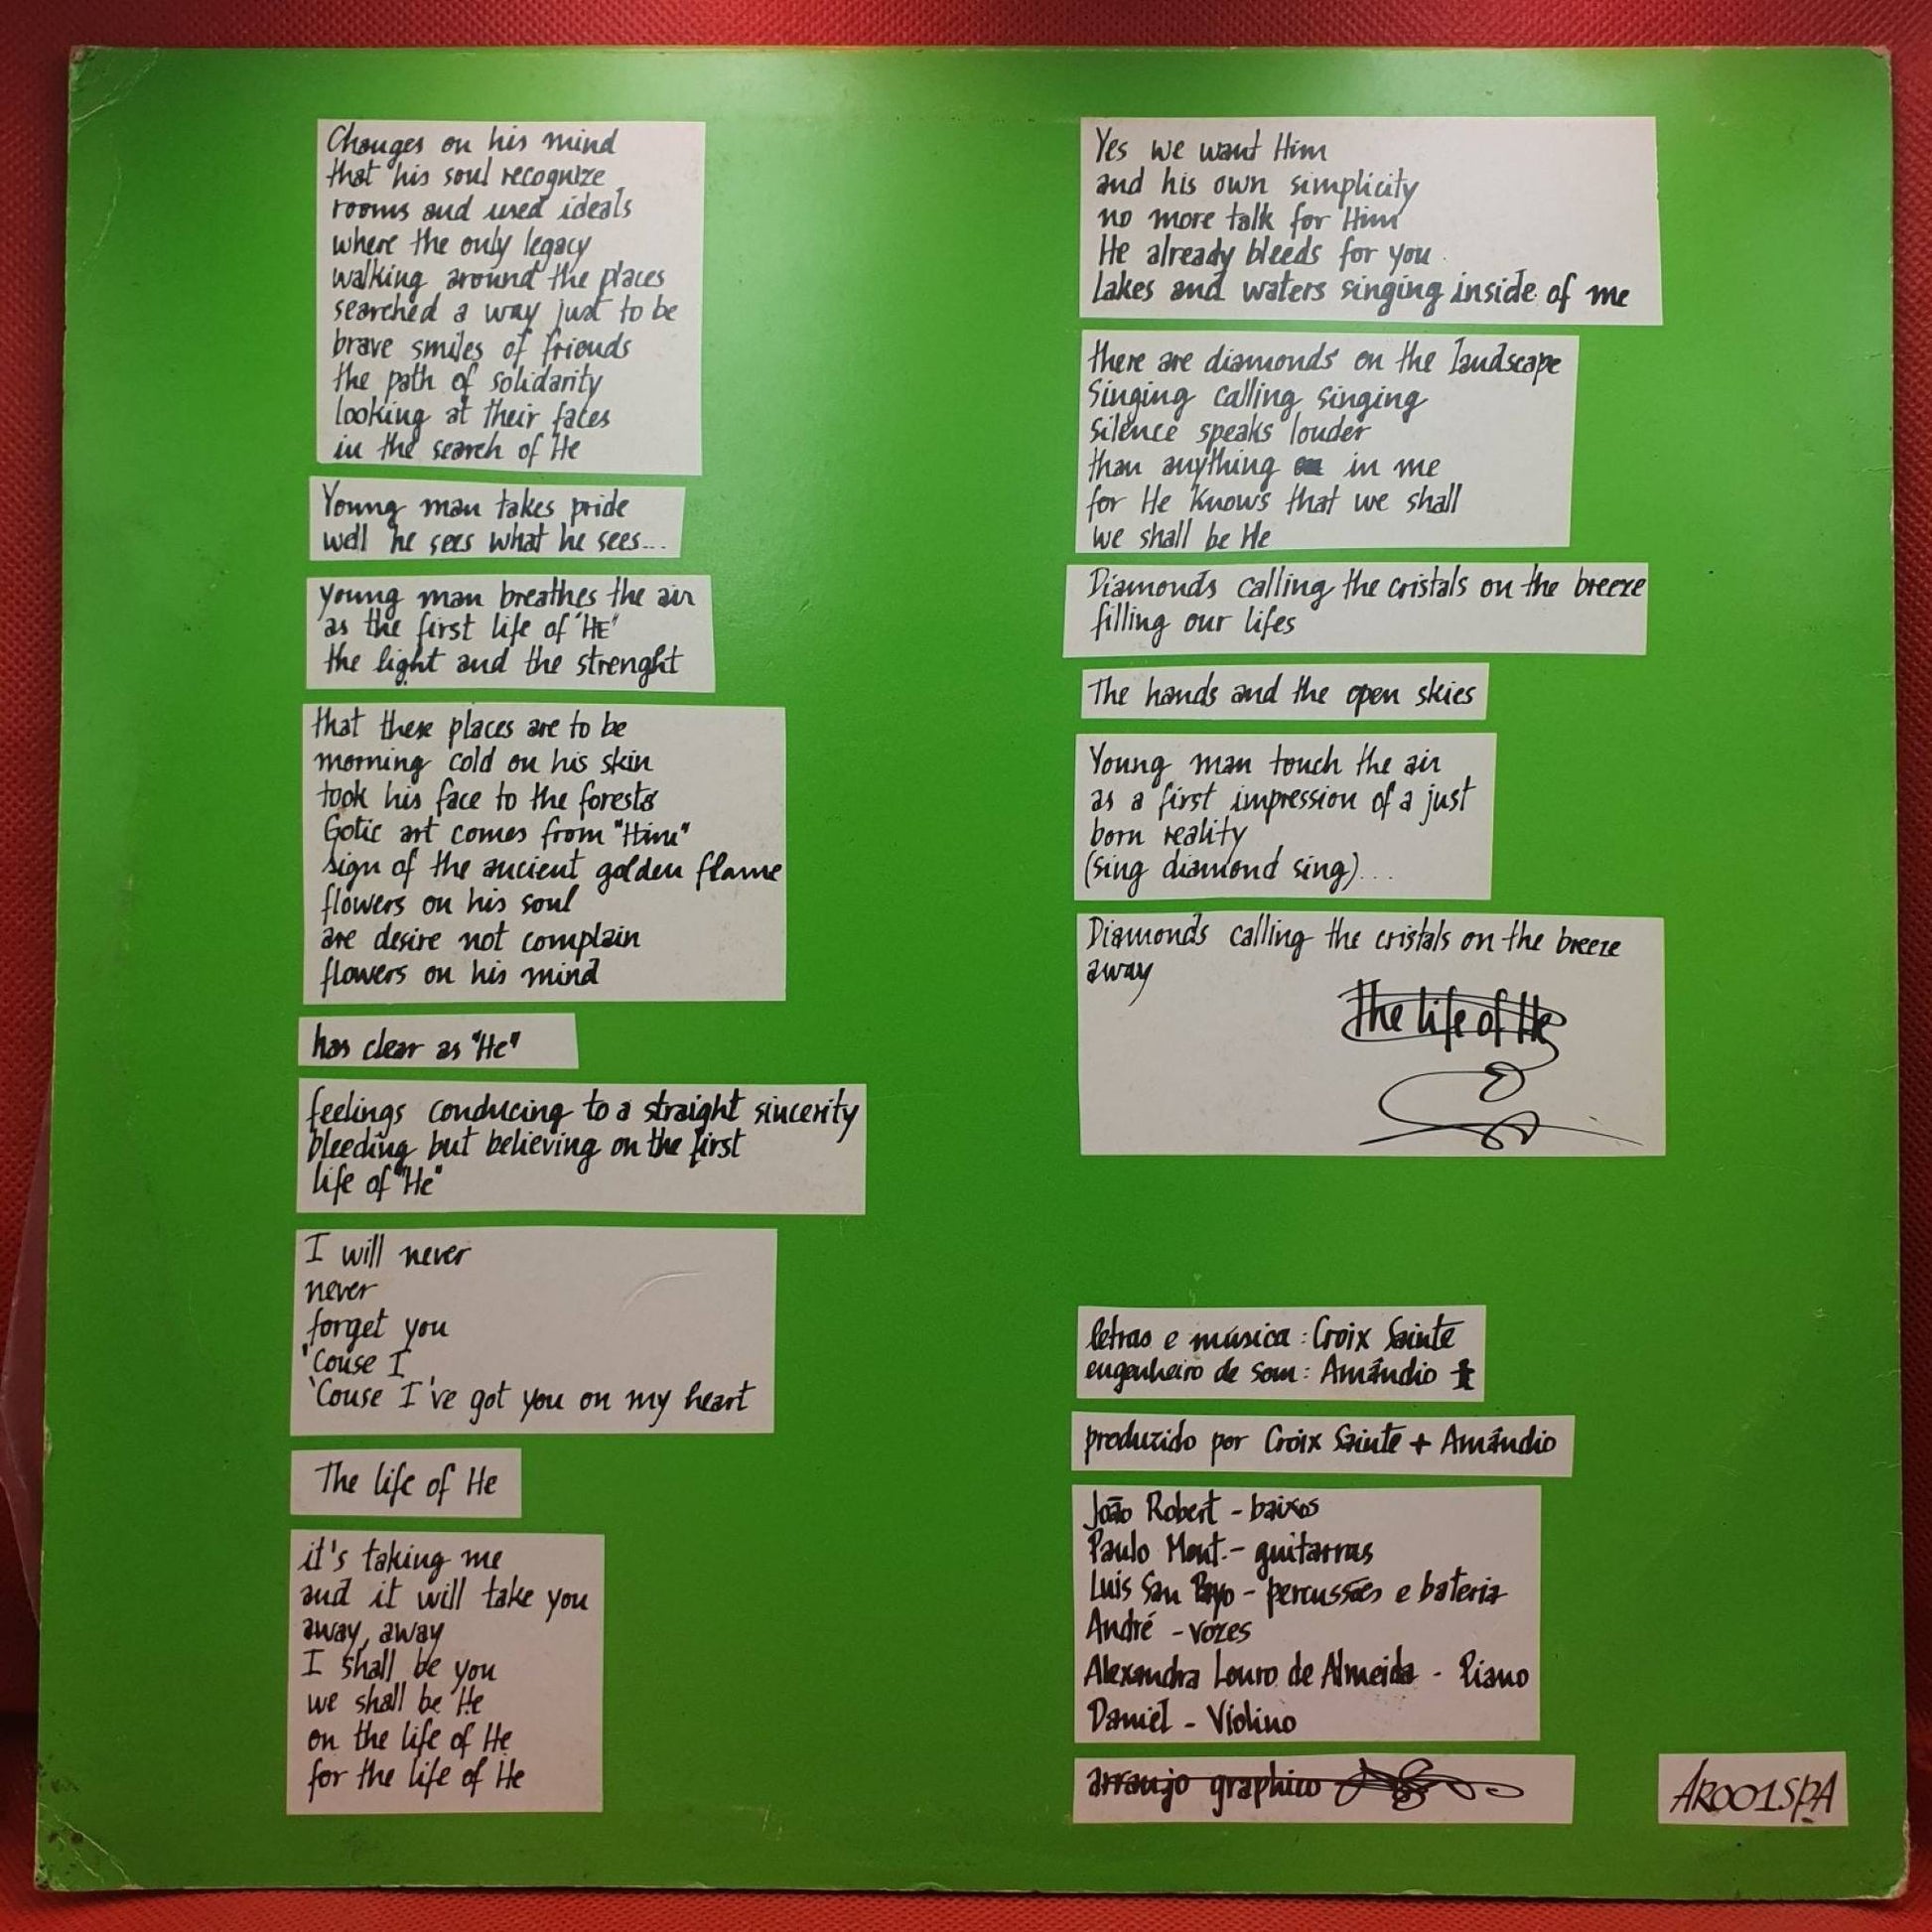 Changes on his mind
that his soul recognize
rooms and used ideals
where the only legacy
walking around the places
searched a way just to be
brave smiles of friends
the path of solidarity
looking at their faces
in the search of He
Young man takes pride
well he sees what he sees...
young man breathes the air
as the first life of "HE"
the light and the strenght
that these places are to be
morning cold on his skin
took his face to the forests
Gotic art comes from "Him"
sign of the ancient golden flame
flowers on his soul
are desire not complain
flowers on his mind
has clear as "He"
feelings conducing to a straight sincerity
bleeding but believing on the first
life of "He"
I will never
never
forget you
'Couse I
'Couse I've got you on my heart
The life of He
it's taking me
and it will take you
away, away
I shall be you
we shall be He
on the life of He
for the life of He
Yes we want Him
and his own simplicity
no more talk for Him
He already bleeds for you
Lakes and waters singing inside of me
there are diamonds on the landscape
Singing calling singing
Silence speaks louder
than anything in me
for He knows that we shall
we shall be He
Diamonds calling the cristals on the breeze
filling our lifes
The hands and the open skies
Young man touch the air
as a first impression of a just
born reality
(sing diamond sing)...
Diamonds calling the cristals on the breeze
away
The life of He
letras e música: Croix Sainte
engenheiro de som: Amândio
produzido por Croix Sainte + Amândio
João Robert - baixos
Paulo Mont. - guitarras
Luis San Payo - percussões e bateria
André - vozes
Alexandra Louro de Almeida - Piano
Daniel - Violino
arraujo graphico
AR001SPA